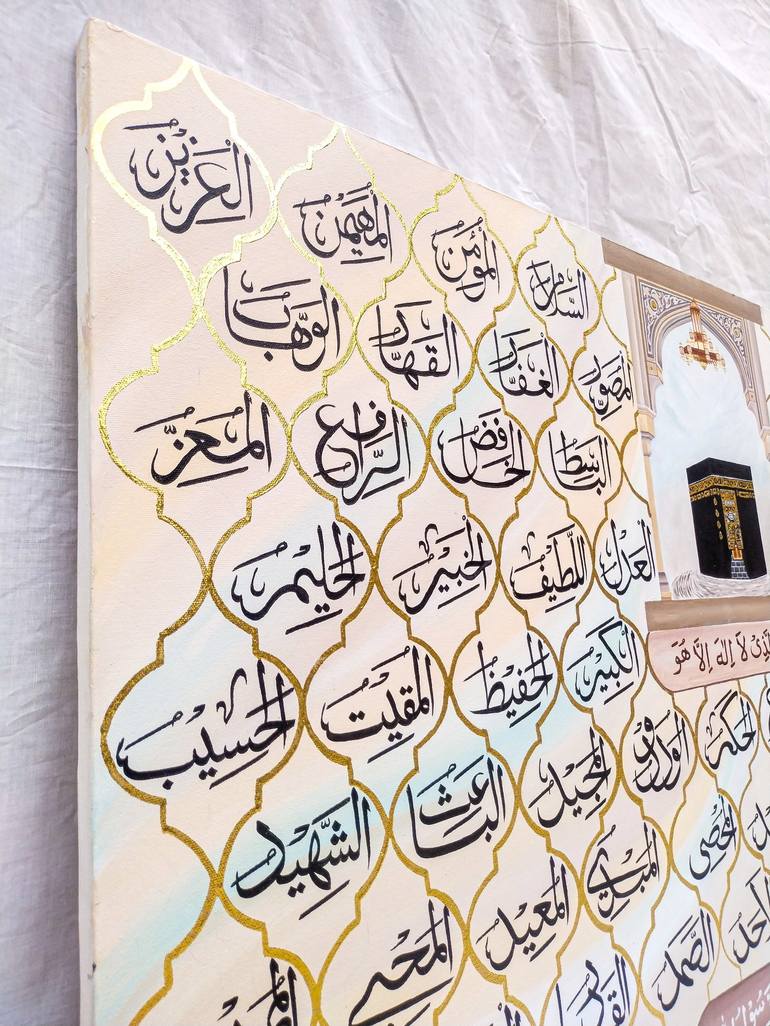 السلام المؤمن المهيمن العزيز
المصور الغفار القهار الوهاب
الباسط الخافض الرافع المعز
العدل اللطيف الخبير الحليم
لا اله الا هو
الكبير الحفيظ المقيت الحسيب
الودود المجيد الباعث الشهيد
المحصي المبدئ المعيد المحيي
الصمد